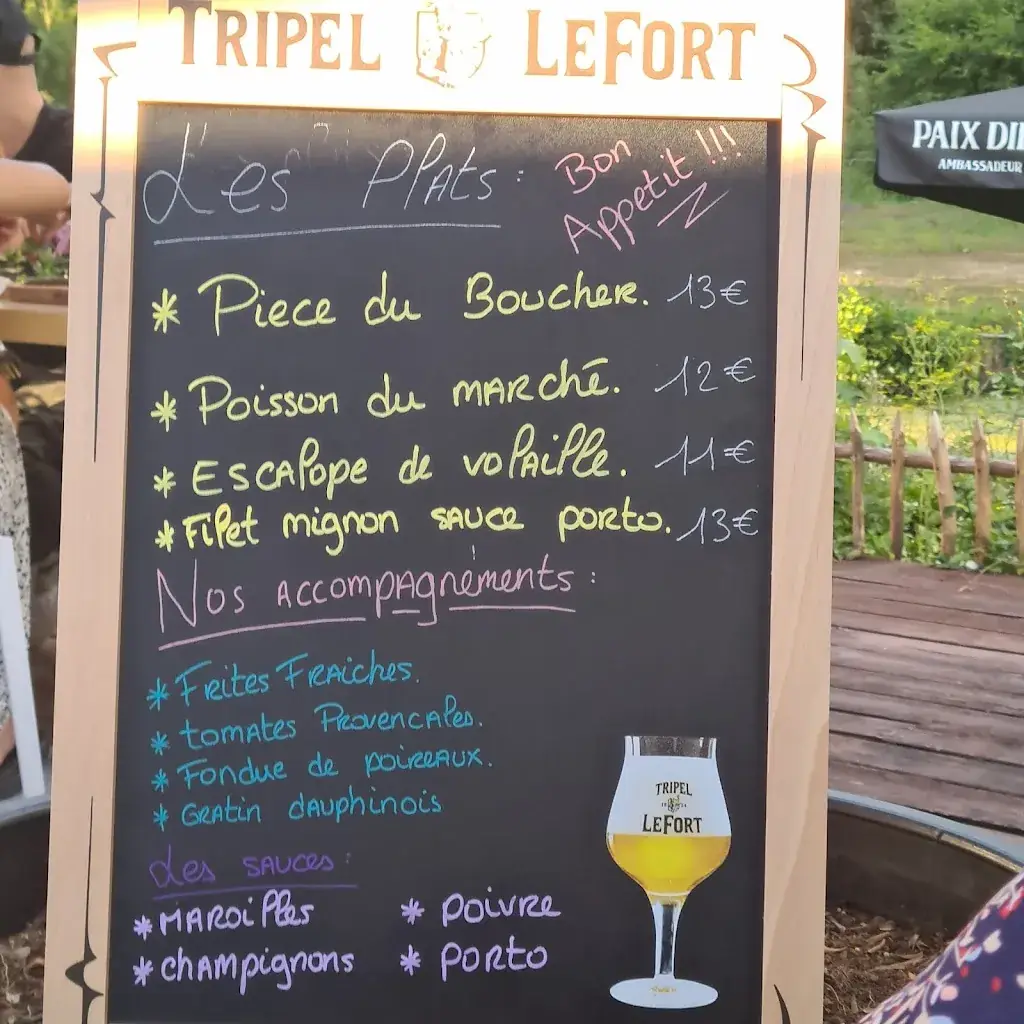 TRIPEL LEFORT
Les Plats :
Bon
Appetit !!!
* Piece du Boucher. 13€
* Poisson du marché. 12€
* Escalope de volaille. 11€
* Filet mignon sauce porto. 13€
Nos accompagnements :
* Frites Fraiches.
* tomates Provencales.
* Fondue de poireaux.
* Gratin dauphinois
Les sauces :
* MAROilles * poivre
* champignons * porto
TRIPEL
LEFORT
PAIX DIE
AMBASSADEUR